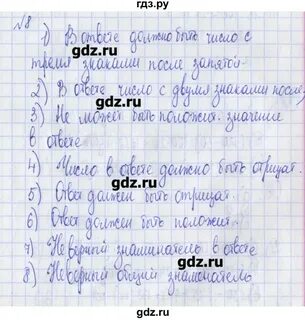 гдз.ру
№8
1) В ответе должно быть число с
тремя знаками после запятой.
2) В ответе число с двумя знаками после
3) Не может быть положит. значение
в ответе
4) Число в ответе должно быть отрицат.
5) Ответ должен быть отрицат.
6) Ответ должен быть положит.
7) Неверный знаминатель в ответе
8) Неверный общий знаменатель
gdz.ru
gdz.ru
gdz.ru
gdz.ru
gdz.ru
gdz.ru
gdz.ru
gdz.ru